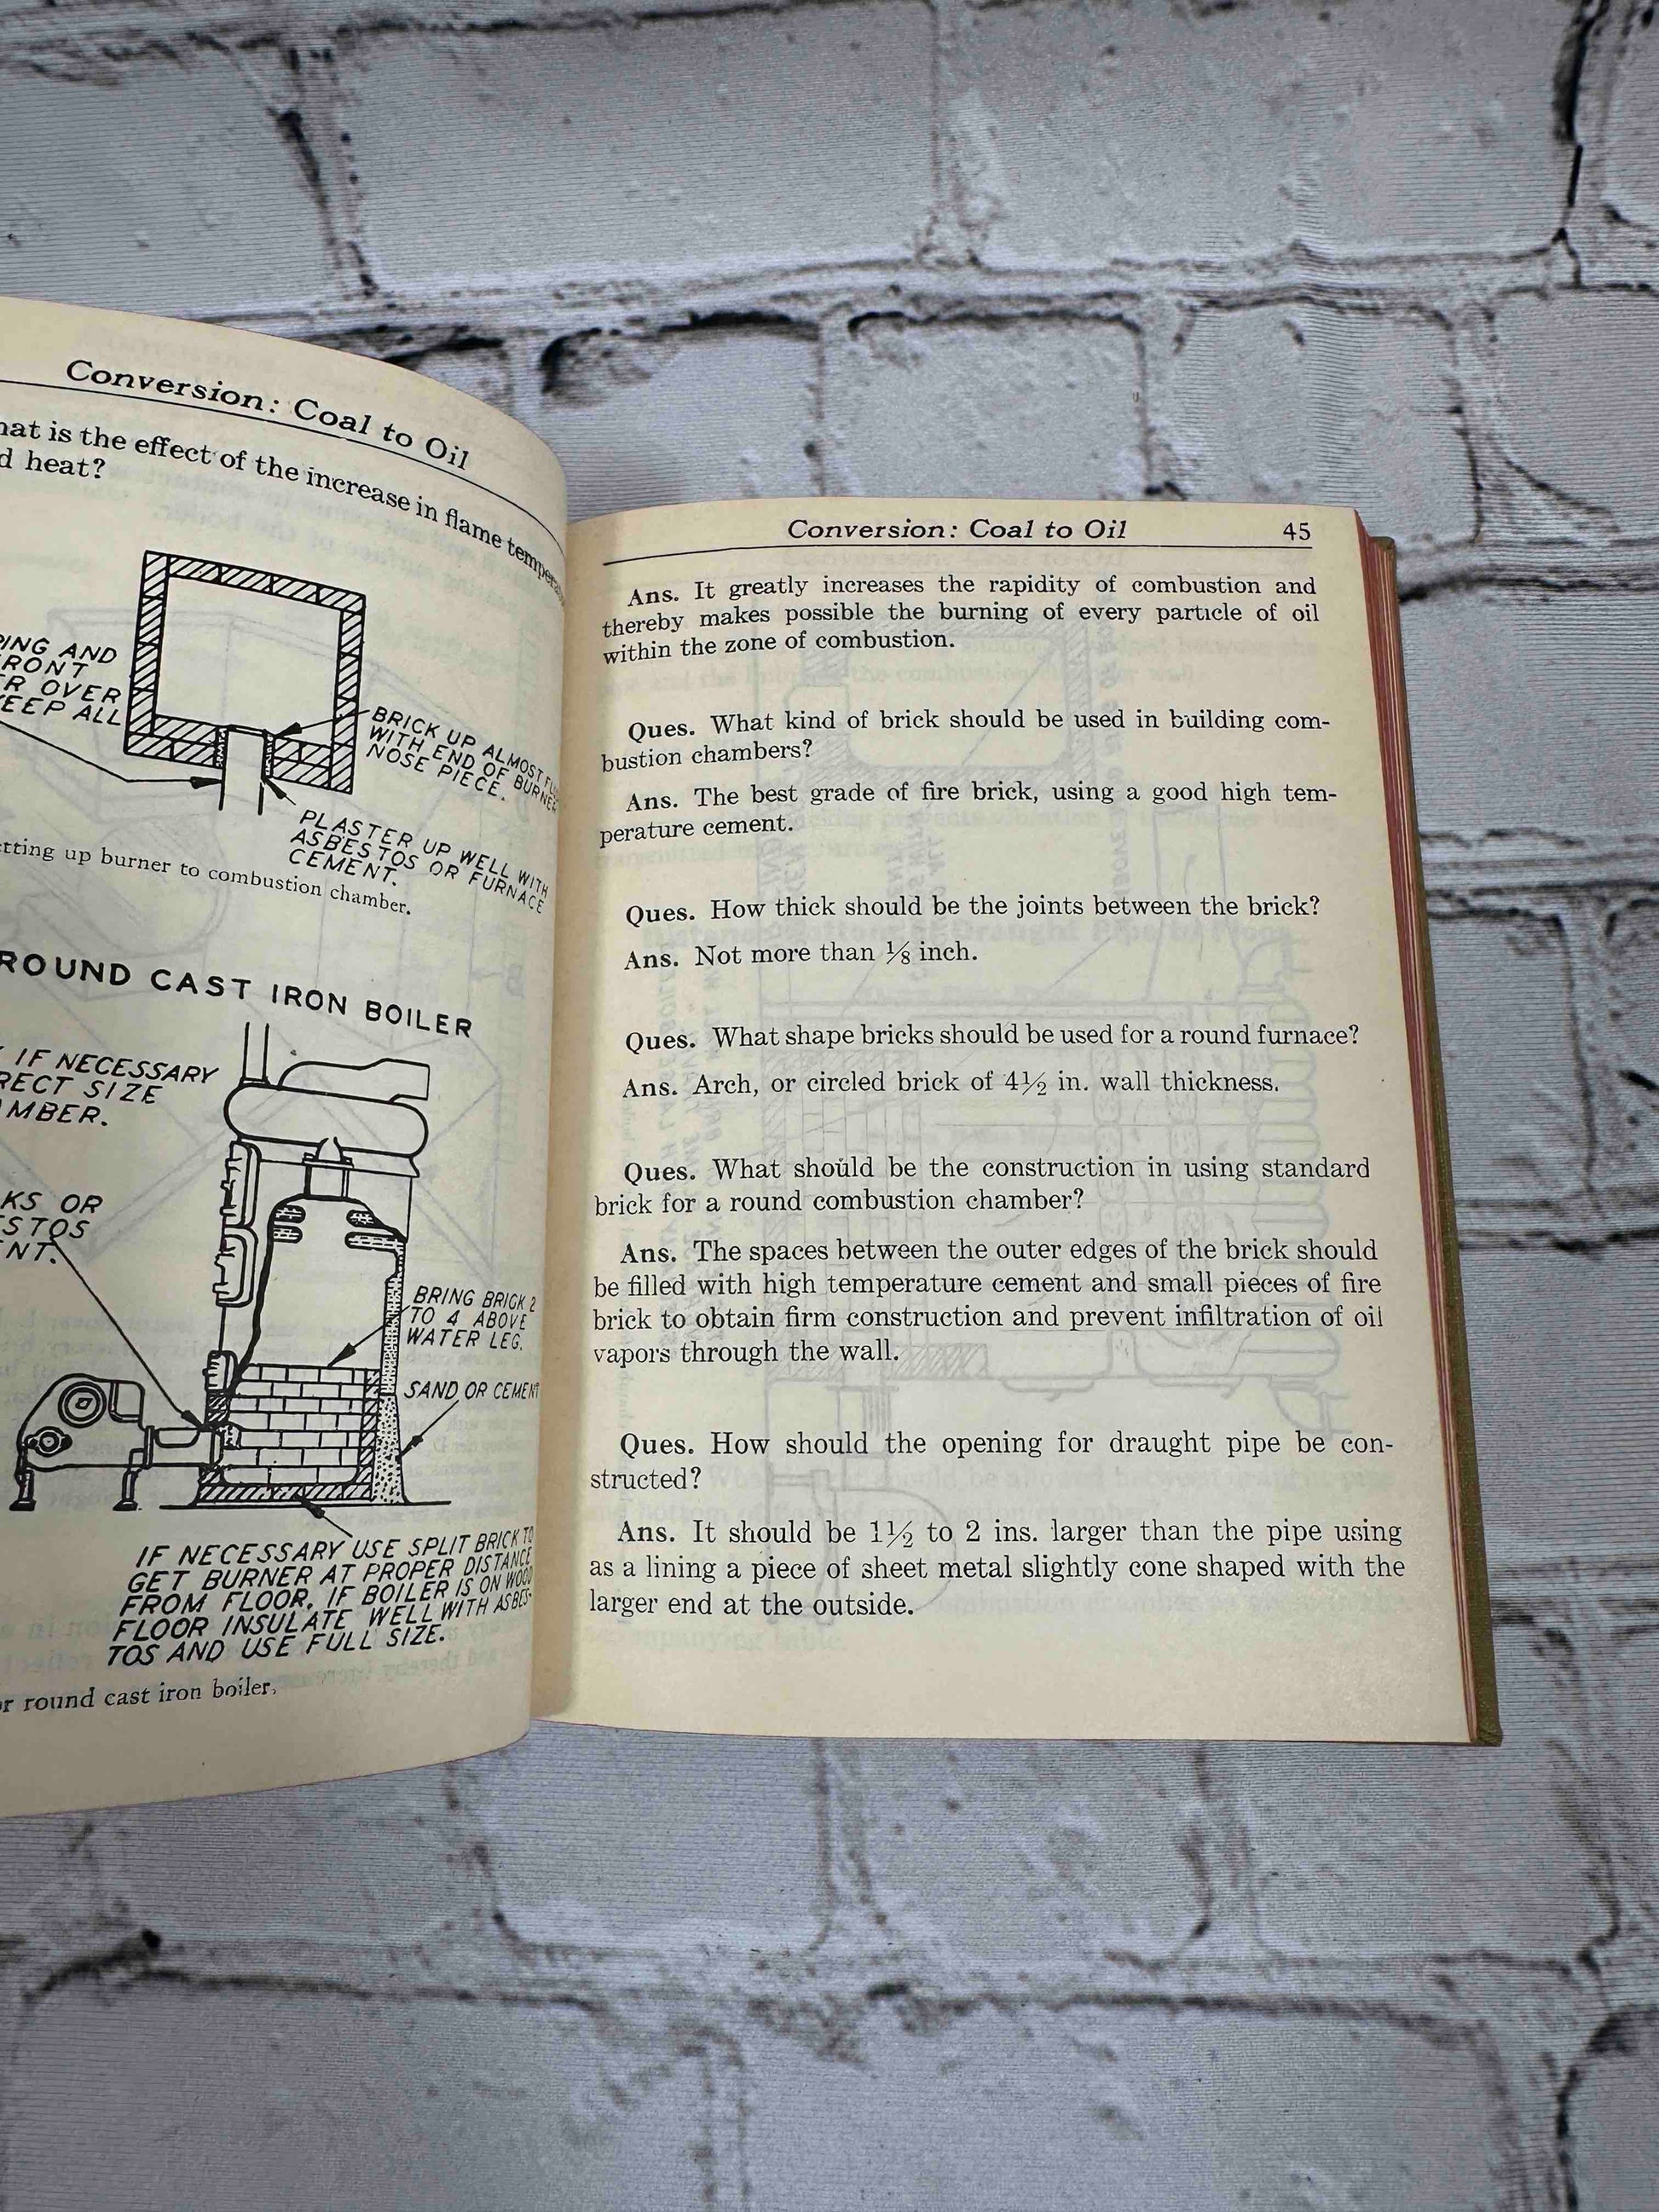 Conversion: Coal to Oil
is the effect of the increase in flame
heat?
AND
OVER
ALL
BRICK UP ALMOST
WITH END OF BURNER
NOSE PIECE.
PLASTER UP WELL WITH
ASBESTOS OR FURNACE
CEMENT.
up burner to combustion chamber.
ROUND CAST IRON BOILER
IF NECESSARY
SIZE
OR
BRING BRICK 2
TO 4 ABOVE
WATER LEG.
SAND OR CEMENT
IF NECESSARY USE SPLIT BRICK TO
GET BURNER AT PROPER DISTANCE
FROM FLOOR. IF BOILER IS ON WOOD
FLOOR INSULATE WELL WITH ASBES-
TOS AND USE FULL SIZE.
round cast iron boiler.
Conversion: Coal to Oil 45
Ans. It greatly increases the rapidity of combustion and
thereby makes possible the burning of every particle of oil
within the zone of combustion.
Ques. What kind of brick should be used in building com-
bustion chambers?
Ans. The best grade of fire brick, using a good high tem-
perature cement.
Ques. How thick should be the joints between the brick?
Ans. Not more than ⅛ inch.
Ques. What shape bricks should be used for a round furnace?
Ans. Arch, or circled brick of 4½ in. wall thickness.
Ques. What should be the construction in using standard
brick for a round combustion chamber?
Ans. The spaces between the outer edges of the brick should
be filled with high temperature cement and small pieces of fire
brick to obtain firm construction and prevent infiltration of oil
vapors through the wall.
Ques. How should the opening for draught pipe be con-
structed?
Ans. It should be 1½ to 2 ins. larger than the pipe using
as a lining a piece of sheet metal slightly cone shaped with the
larger end at the outside.